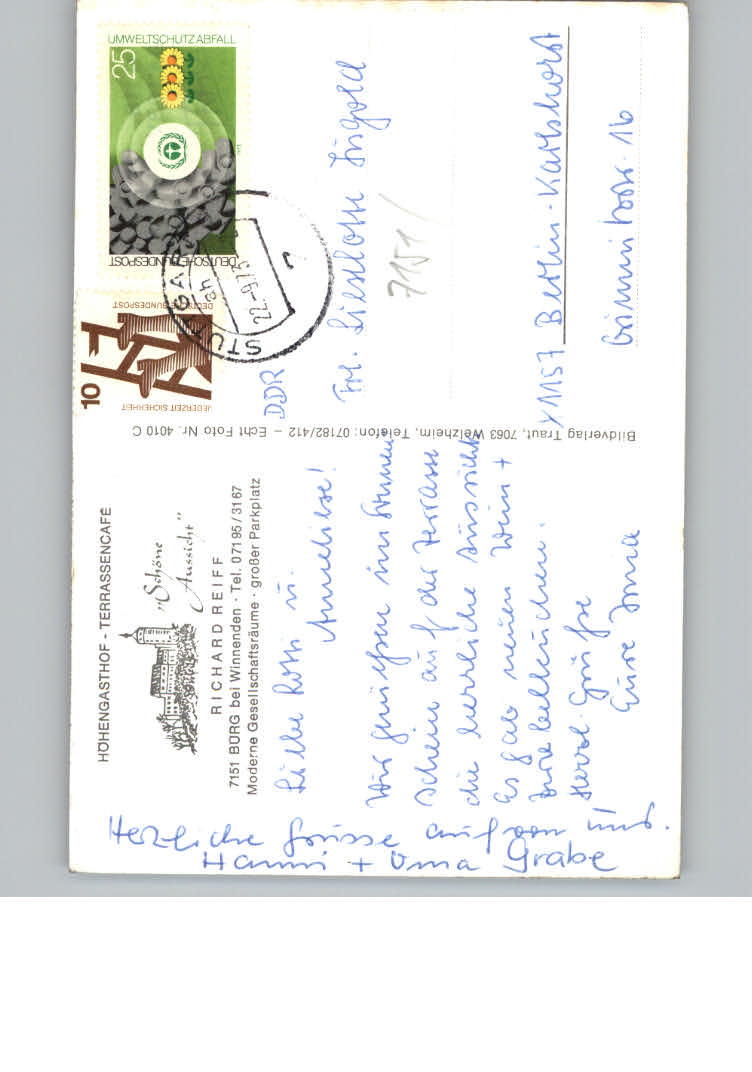 HÖHENGASTHOF - TERRASSENCAFÉ
„Schöne
Aussicht"
RICHARD REIFF
7151 BÜRG bei Winnenden · Tel. 07195/3167
Moderne Gesellschaftsräume · großer Parkplatz
Liebe Lotti u.
Anneliese!
Wir genießen im Sonnen
schein auf der Terrasse
die herrliche Aussicht
Es gab neuen Wein +
Zwiebelkuchen.
Herzl. Grüße
Eure
Herzliche Grüsse auf von uns.
Hanni + Oma Grabe
Bildverlag Traut, 7063 Welzheim, Telefon: 07182/412 – Echt Foto Nr. 4010 C
UMWELTSCHUTZ ABFALL
25
DEUTSCHE BUNDESPOST
10
JEDERZEIT SICHERHEIT
DEUTSCHE BUNDESPOST
STUTTGART
22.-9.73
ah
7
DDR
Frl. Lieselotte
7151/
X1157 Berlin-Karlshorst
16